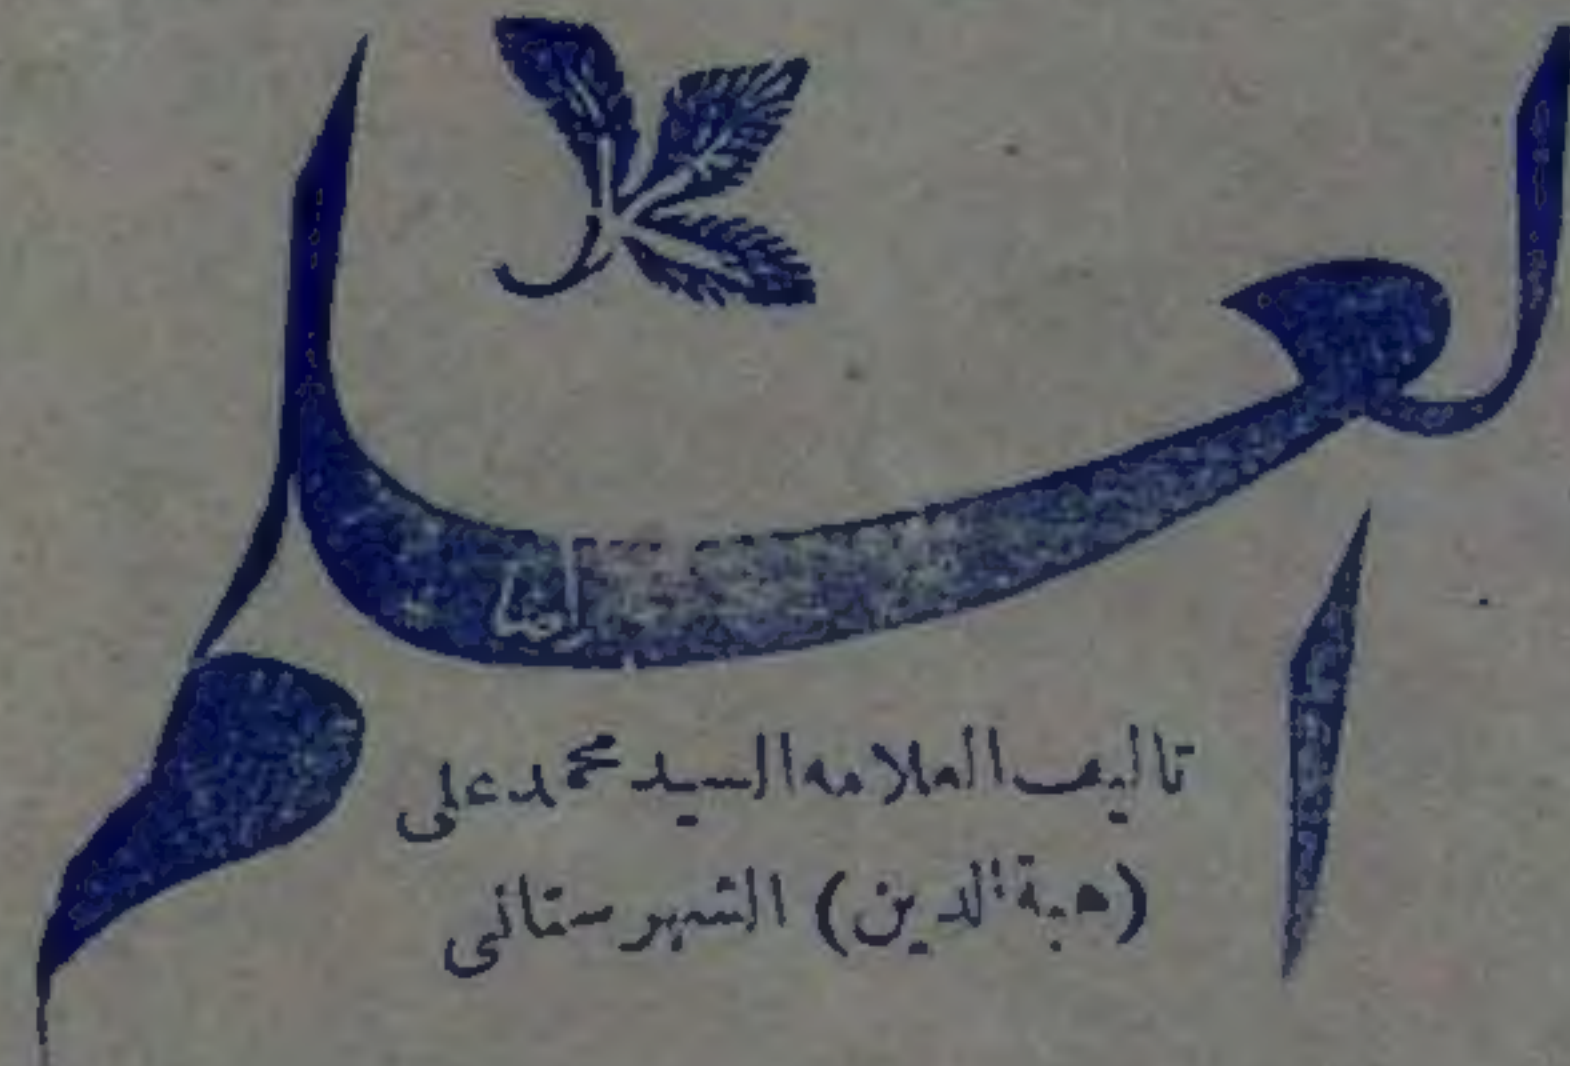 العلم
تاليف العلامه السيد محمد على
(هبة الدين) الشهرستانى